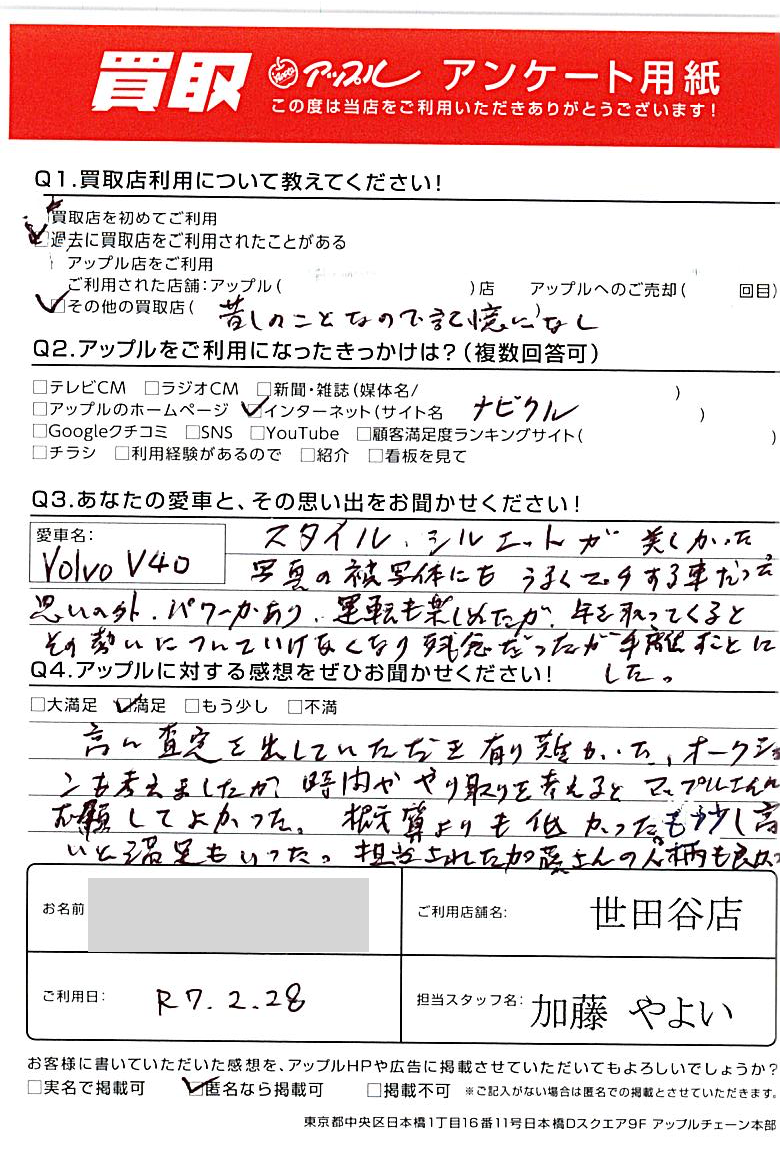 買取 アップル アンケート用紙
この度は当店をご利用いただきありがとうございます!
Q1.買取店利用について教えてください!
買取店を初めてご利用
☑過去に買取店をご利用されたことがある
アップル店をご利用
ご利用された店舗:アップル( )店 アップルへのご売却( 回目)
☑その他の買取店( 昔しのことなので記憶になし )
Q2.アップルをご利用になったきっかけは?(複数回答可)
□テレビCM □ラジオCM □新聞・雑誌(媒体名/ )
□アップルのホームページ ☑インターネット(サイト名 ナビクル )
□Googleクチコミ □SNS □YouTube □顧客満足度ランキングサイト( )
□チラシ □利用経験があるので □紹介 □看板を見て
Q3.あなたの愛車と、その思い出をお聞かせください!
愛車名:
Volvo V40
スタイル、シルエットが美しかった。
写真の被写体にもうまくマッチする車だった。
思いの外、パワーがあり、運転も楽しめたが、年を取ってくると
その勢いについていけなくなり残念だったが手離すことに
した。
Q4.アップルに対する感想をぜひお聞かせください!
□大満足 ☑満足 □もう少し □不満
高い査定を出していただき有り難かった。オークショ
ンも考えましたが時間ややり取りを考えるとアップルさんに
お願してよかった。概算よりも低かった。もう少し高
いと満足もいった。担当された加藤さんの人柄も良かっ
お名前
ご利用店舗名: 世田谷店
ご利用日: R7.2.28
担当スタッフ名: 加藤 やよい
お客様に書いていただいた感想を、アップルHPや広告に掲載させていただいてもよろしいでしょうか?
□実名で掲載可 ☑匿名なら掲載可 □掲載不可 ※ご記入がない場合は匿名での掲載とさせていただきます。
東京都中央区日本橋1丁目16番11号日本橋Dスクエア9F アップルチェーン本部